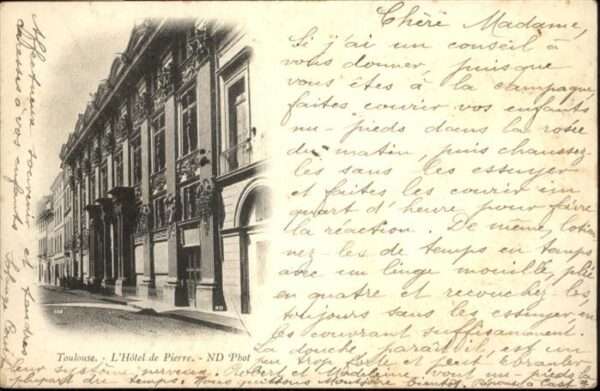 Chère Madame,
Si j'ai un conseil à
vous donner, puisque
vous êtes à la campagne,
faites courir vos enfants
nu-pieds dans la rosée
du matin, puis chaussez-
les sans les essuyer
et faites les courir un
quart d'heure pour faire
la réaction. De même,
nez-les de temps en temps
avec un linge mouillé, plié
en quatre et recouchez-les
toujours sans les essuyer, en
les couvrant suffisamment.
La douche paraît-il est un
peu trop forte et peut ébranler
leur système nerveux. Robert et Madeleine vont nu-pieds la
plupart du temps. Nous quittons
Affectueux souvenir et tendres
caresses à vos enfants
Toulouse. - L'Hôtel de Pierre. - ND Phot